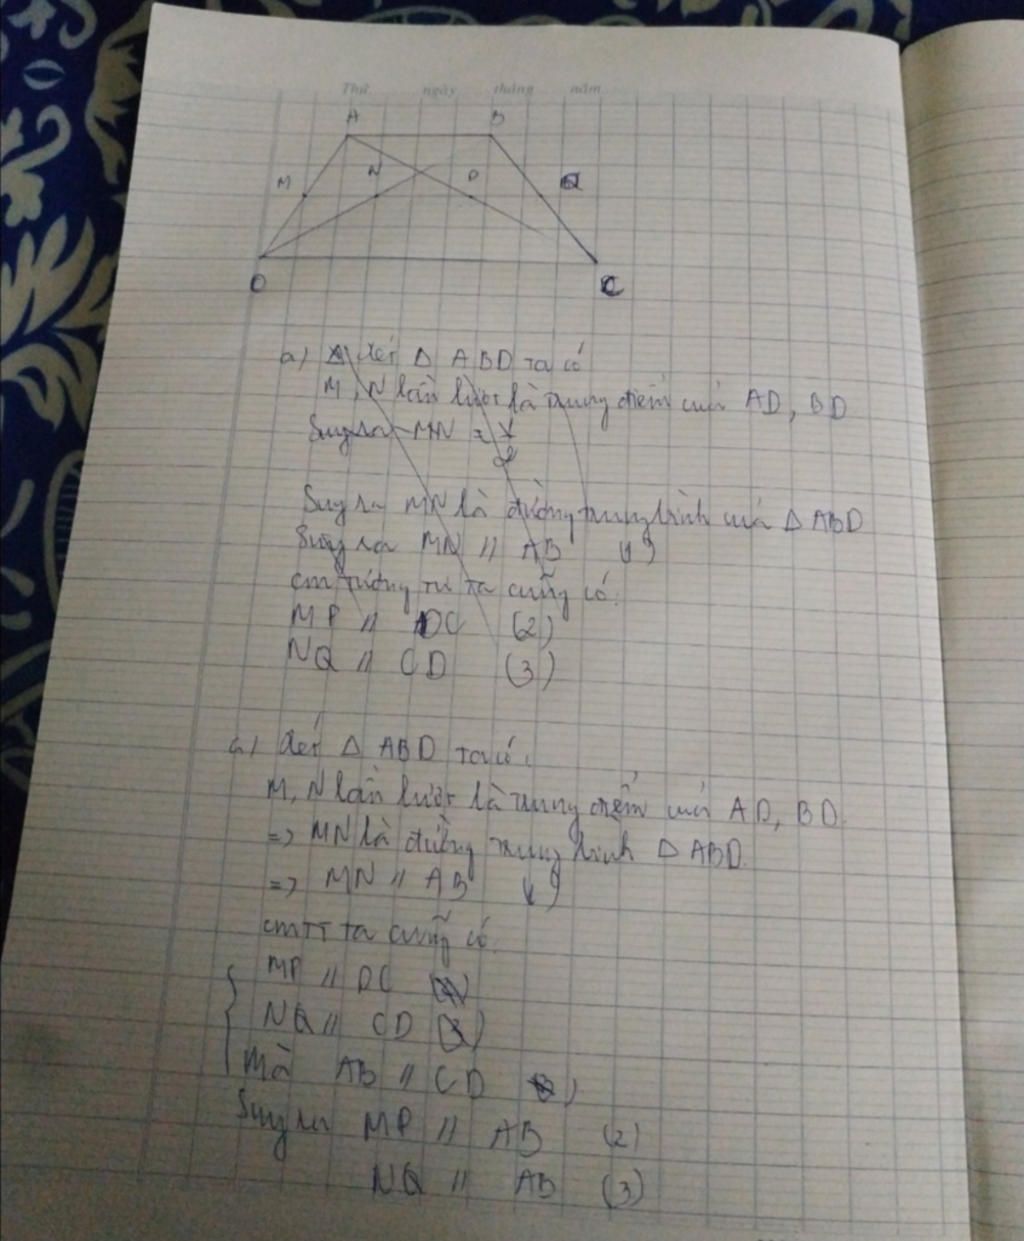 Thứ ngày tháng năm
A B
M N P Q
D C
a) Xét Δ ABD ta có
M, N lần lượt là trung điểm của AD, BD
Suy ra MN =
Suy ra MN là đường trung bình của Δ ABD
Suy ra MN // AB (1)
cm tương tự ta cũng có:
MP // DC (2)
NQ // CD (3)
a) Xét Δ ABD ta có:
M, N lần lượt là trung điểm của AD, BD.
=> MN là đường trung bình Δ ABD.
=> MN // AB (1)
cmTT ta cũng có.
MP // DC
NQ // CD
Mà AB // CD
Suy ra MP // AB (2)
NQ // AB (3)